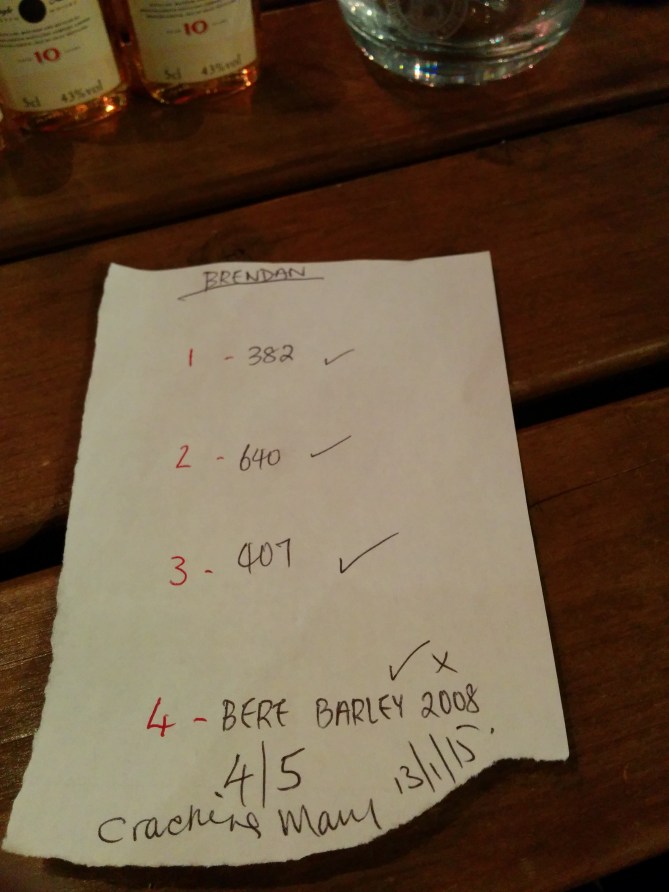 10
5cl 43%vol
10
5cl 43%vol
BRENDAN
1 - 382 ✓
2 - 640 ✓
3 - 407 ✓
✓ x
4 - BERE BARLEY 2008
4/5
13/1/15.
Cracking